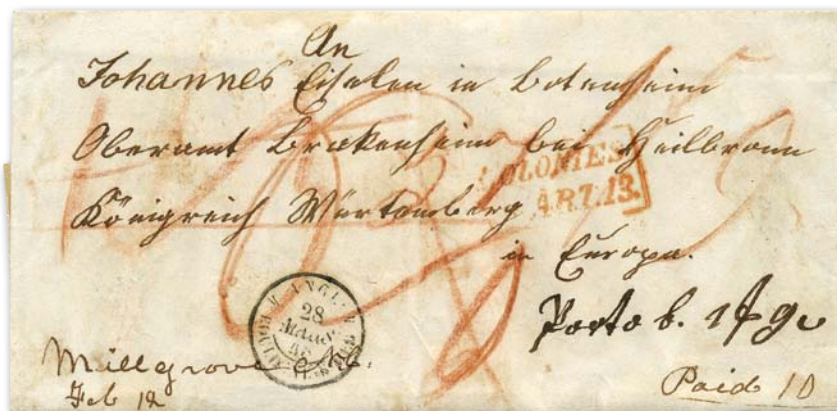 An
Johannes Eiselen in Botenheim
Oberamt Brakenheim bei Heilbronn
Königreich Würtemberg
in Europa.
COLONIES
ART. 13.
ANGL.
28
48
Porto b.
Millgrove
Feb 12
Paid 10